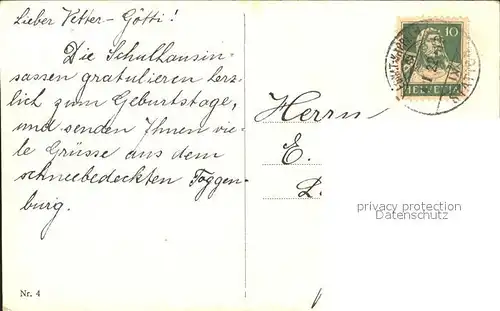 Lieber Vetter-Götti!
Die Schulhausin-
sassen gratulieren herz-
lich zum Geburtstage,
und senden Ihnen vie-
le Grüsse aus dem
schneebedeckten Toggen-
burg.
Nr. 4
10
HELVETIA
Herrn
E.
L.
privacy protection
Datenschutz